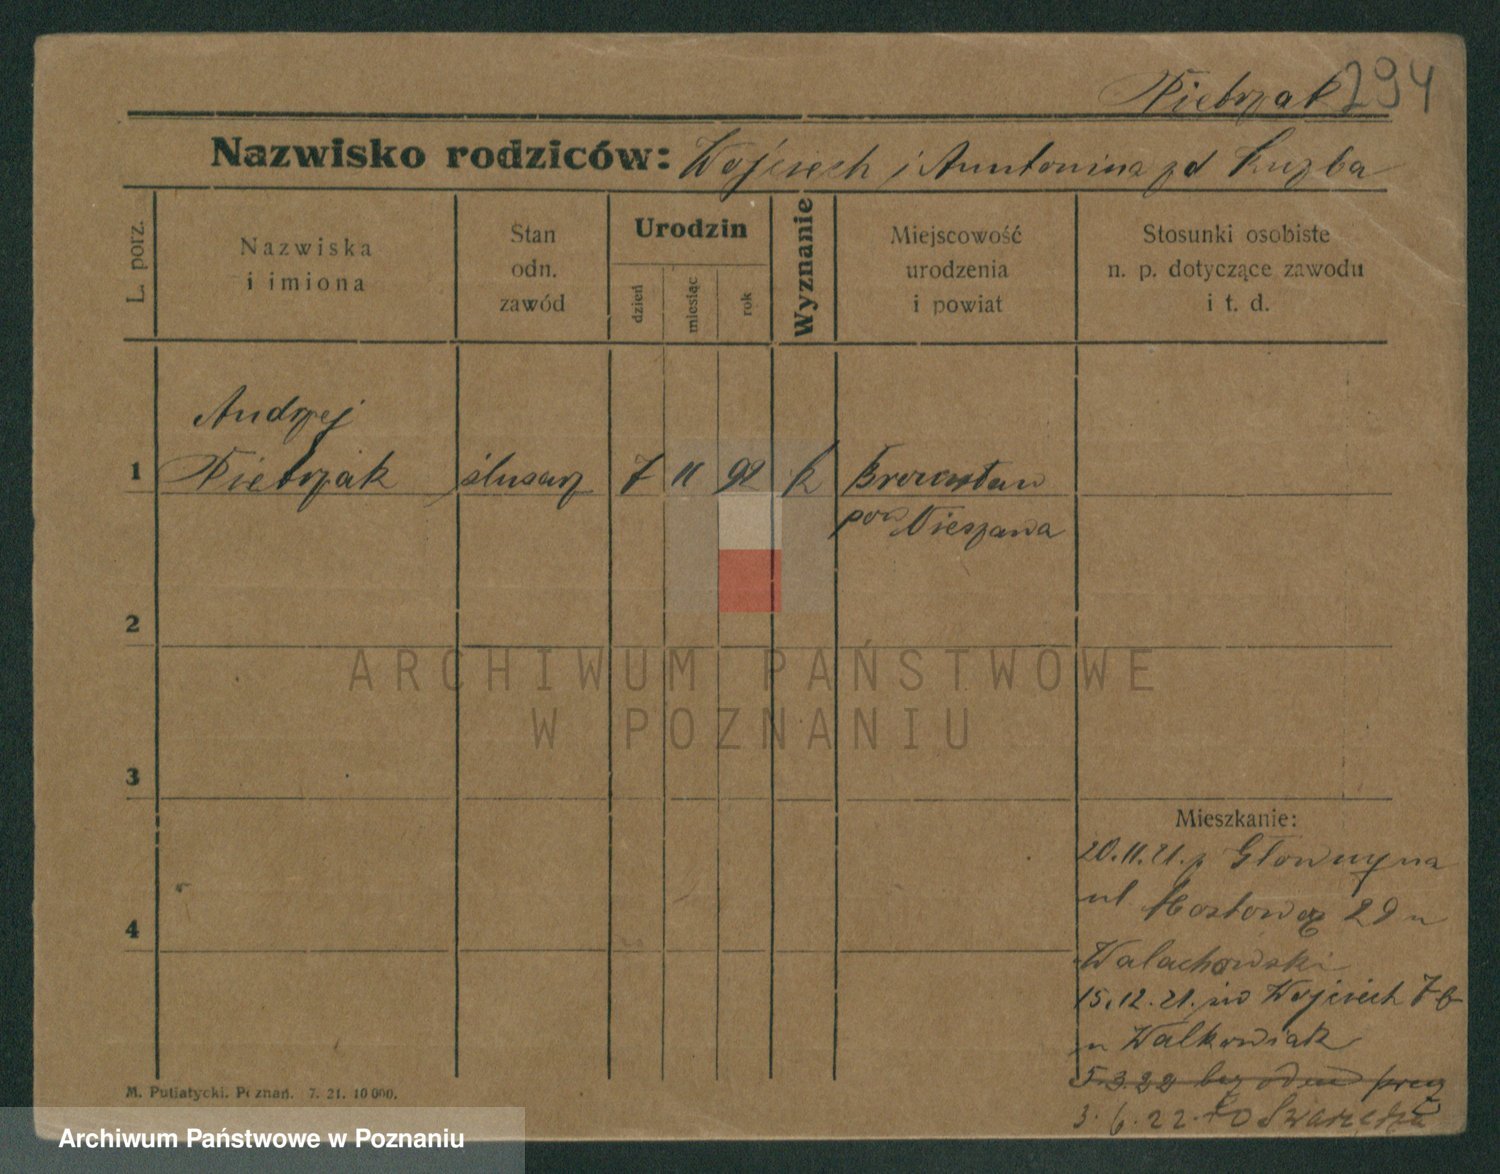 Pietrzak 294
Nazwisko rodziców: Wojciech i Anntonina zd
L. porz.
Nazwiska
i imiona
Stan
odn.
zawód
Urodzin
dzień
miesiąc
rok
Wyznanie
Miejscowość
urodzenia
i powiat
Stosunki osobiste
n. p. dotyczące zawodu
i t. d.
Andrzej
1 Pietrzak ślusarz 7 11 92 k
pow Nieszawa
2
ARCHIWUM PAŃSTWOWE
W POZNANIU
3
Mieszkanie:
20.11.21. p
ul Mostowa 29 u
4
Walachowski
15.12.21. św Wojciech 7b
u Walkowiak
5.3.22 bez
3.6.22. do Swarzędza
M. Putiatycki. Poznań. 7. 21. 10 000.
Archiwum Państwowe w Poznaniu